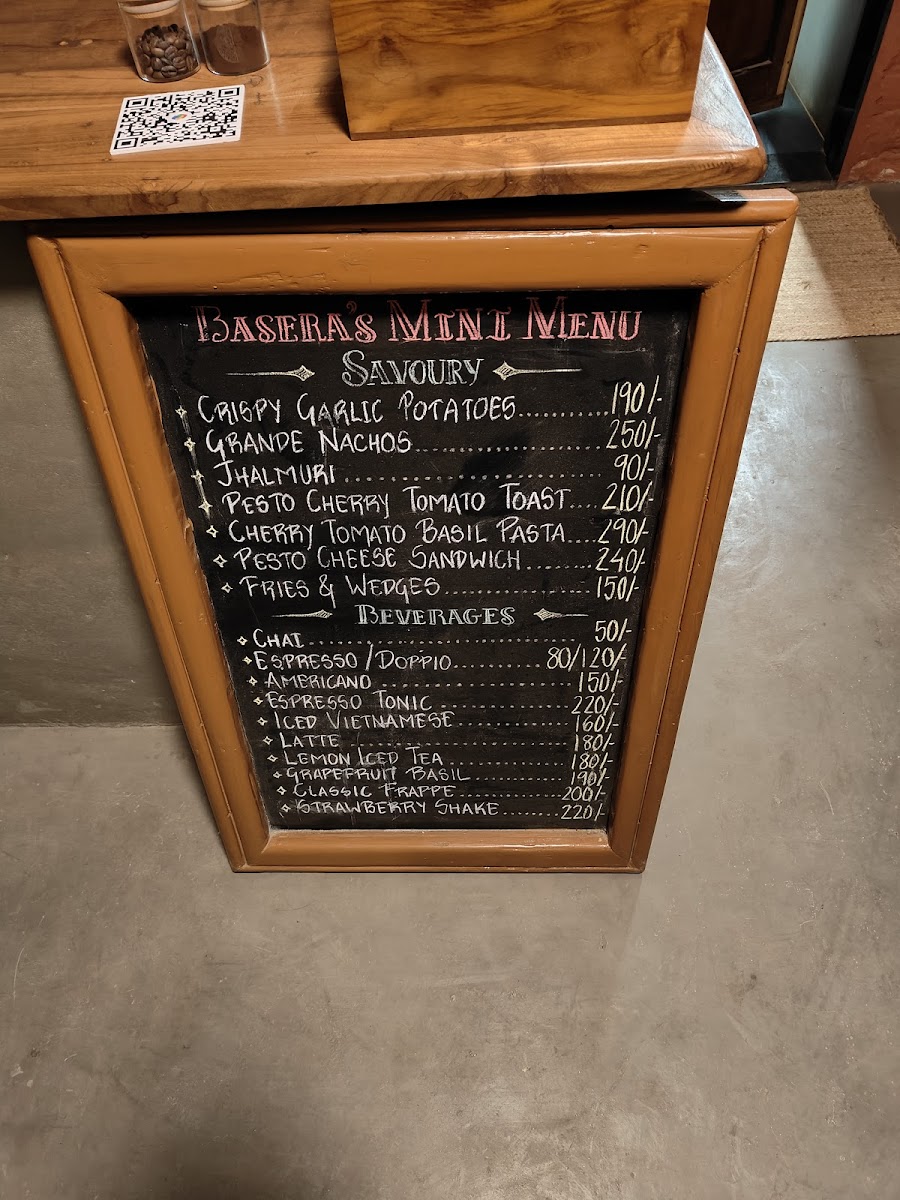 BASERA'S MINI MENU
SAVOURY
CRISPY GARLIC POTATOES...........190/-
GRANDE NACHOS...........................250/-
JHALMURI....................................90/-
PESTO CHERRY TOMATO TOAST....210/-
CHERRY TOMATO BASIL PASTA....290/-
PESTO CHEESE SANDWICH.........240/-
FRIES & WEDGES.....................150/-
BEVERAGES
CHAI....................................50/-
ESPRESSO/DOPPIO............80/120/-
AMERICANO..........................150/-
ESPRESSO TONIC..................220/-
ICED VIETNAMESE.................160/-
LATTE..................................180/-
LEMON ICED TEA..................180/-
GRAPEFRUIT BASIL...............190/-
CLASSIC FRAPPE..................200/-
STRAWBERRY SHAKE.........220/-